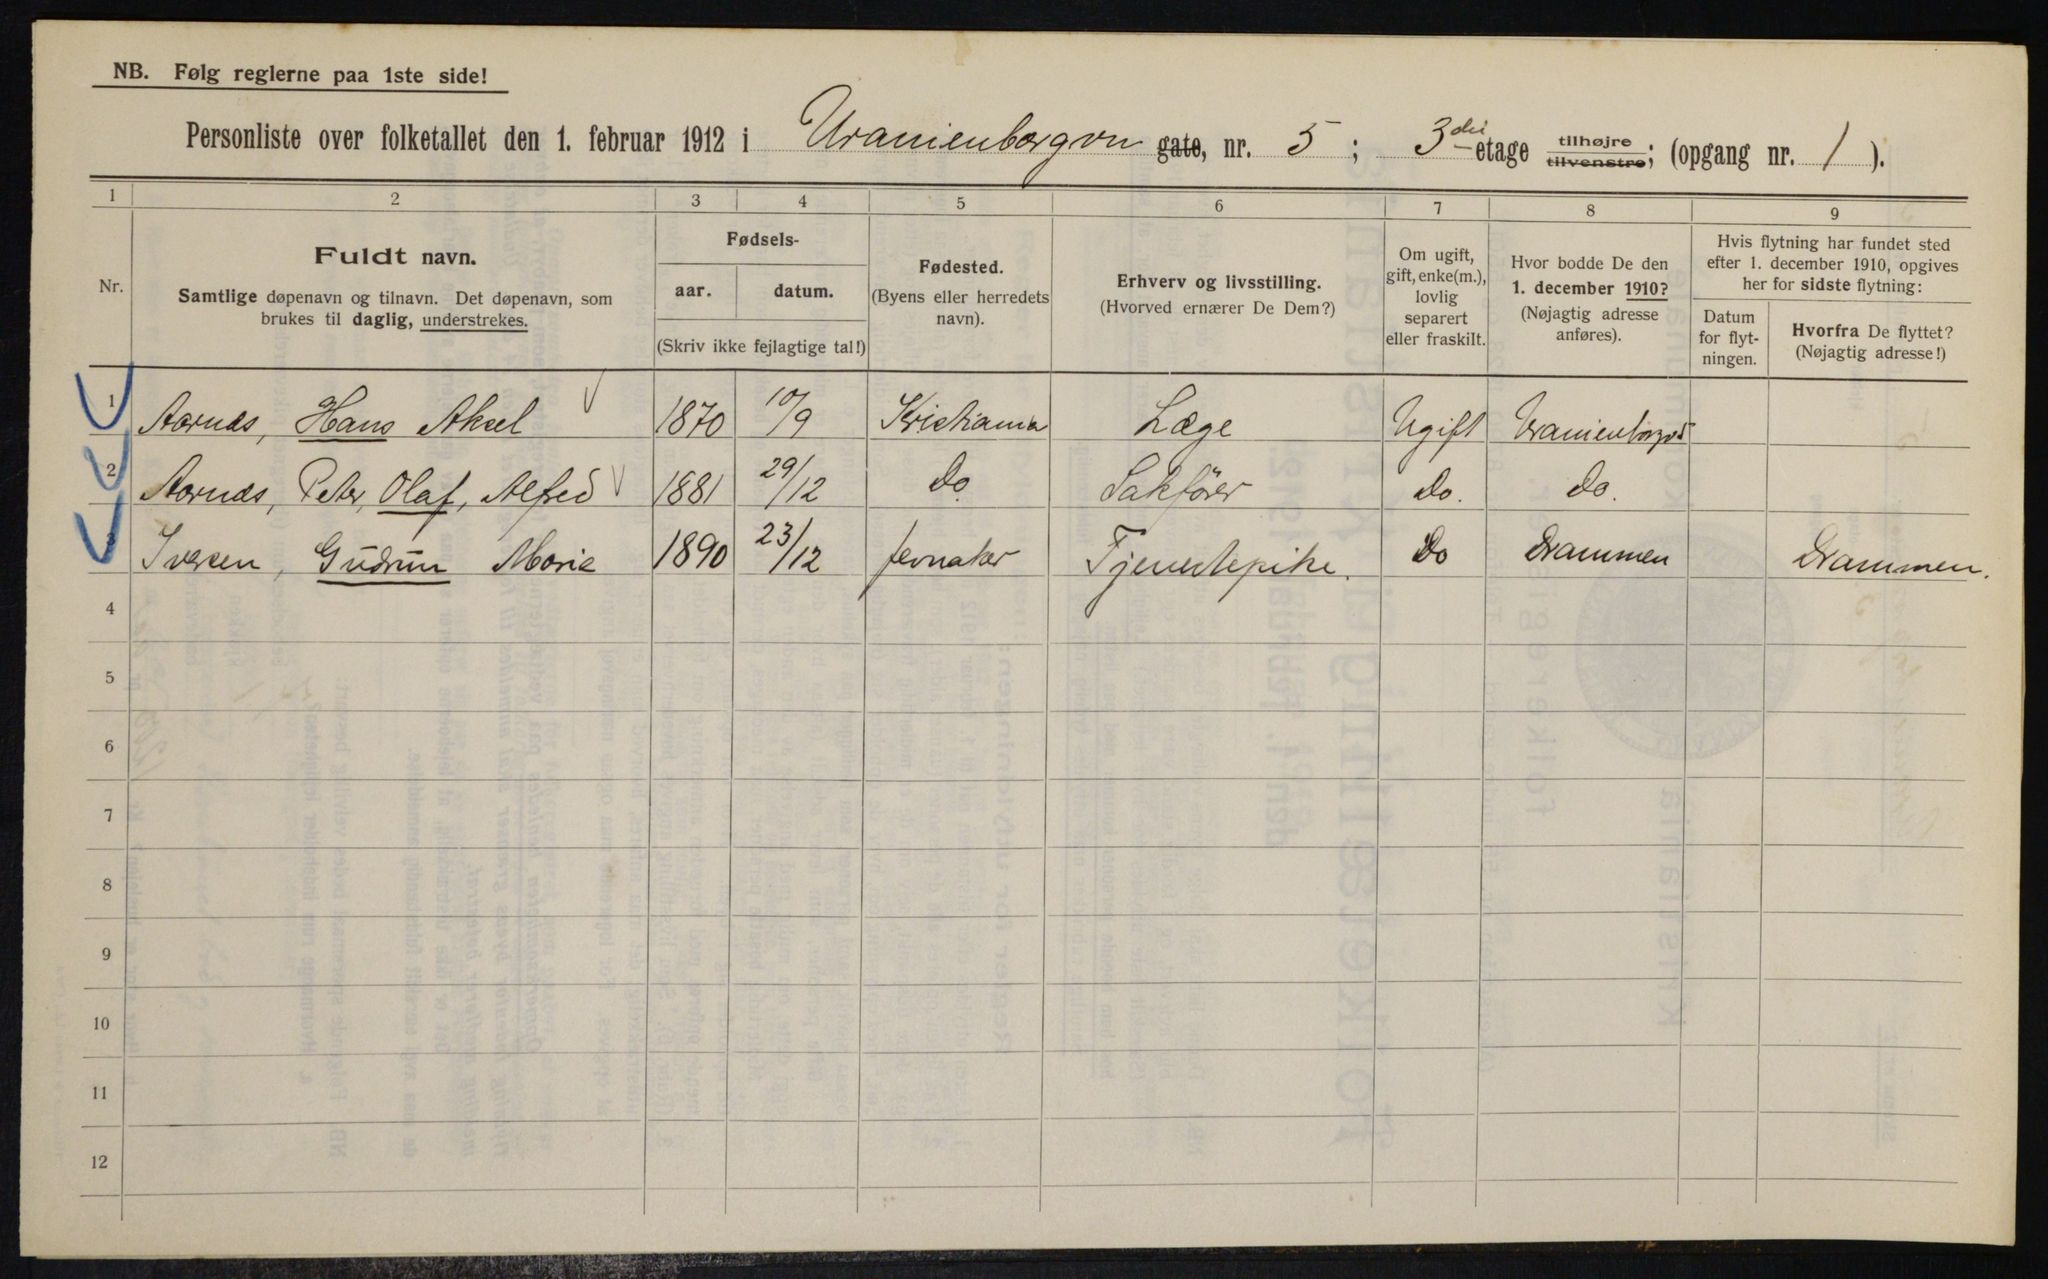 NB. Følg reglerne paa 1ste side!
Personliste over folketallet den 1. februar 1912 i Uranienborgvn gate, nr. 5 ; 3die etage tilhøjre tilvenstre; (opgang nr. 1 ).
1 2 3 4 5 6 7 8 9
Nr.
Fuldt navn.
Samtlige døpenavn og tilnavn. Det døpenavn, som
brukes til daglig, understrekes.
Fødsels-
aar. datum.
(Skriv ikke fejlagtige tal!)
Fødested.
(Byens eller herredets
navn).
Erhverv og livsstilling.
(Hvorved ernærer De Dem?)
Om ugift,
gift, enke(m.),
lovlig
separert
eller fraskilt.
Hvor bodde De den
1. december 1910?
(Nøjagtig adresse
anføres).
Hvis flytning har fundet sted
efter 1. december 1910, opgives
her for sidste flytning:
Datum
for flyt-
ningen.
Hvorfra De flyttet?
(Nøjagtig adresse!)
1 Aarnæs, Hans Aksel 1870 10/9 Kristiania Læge Ugift Uranienborgv 5
2 Aarnæs, Peter, Olaf, Alfred 1881 29/12 Do. Sakfører Do. Do.
3 Iversen, Gudrun Marie 1890 23/12 Jevnaker Tjenestepike. Do Drammen Drammen.
4
5
6
7
8
9
10
11
12